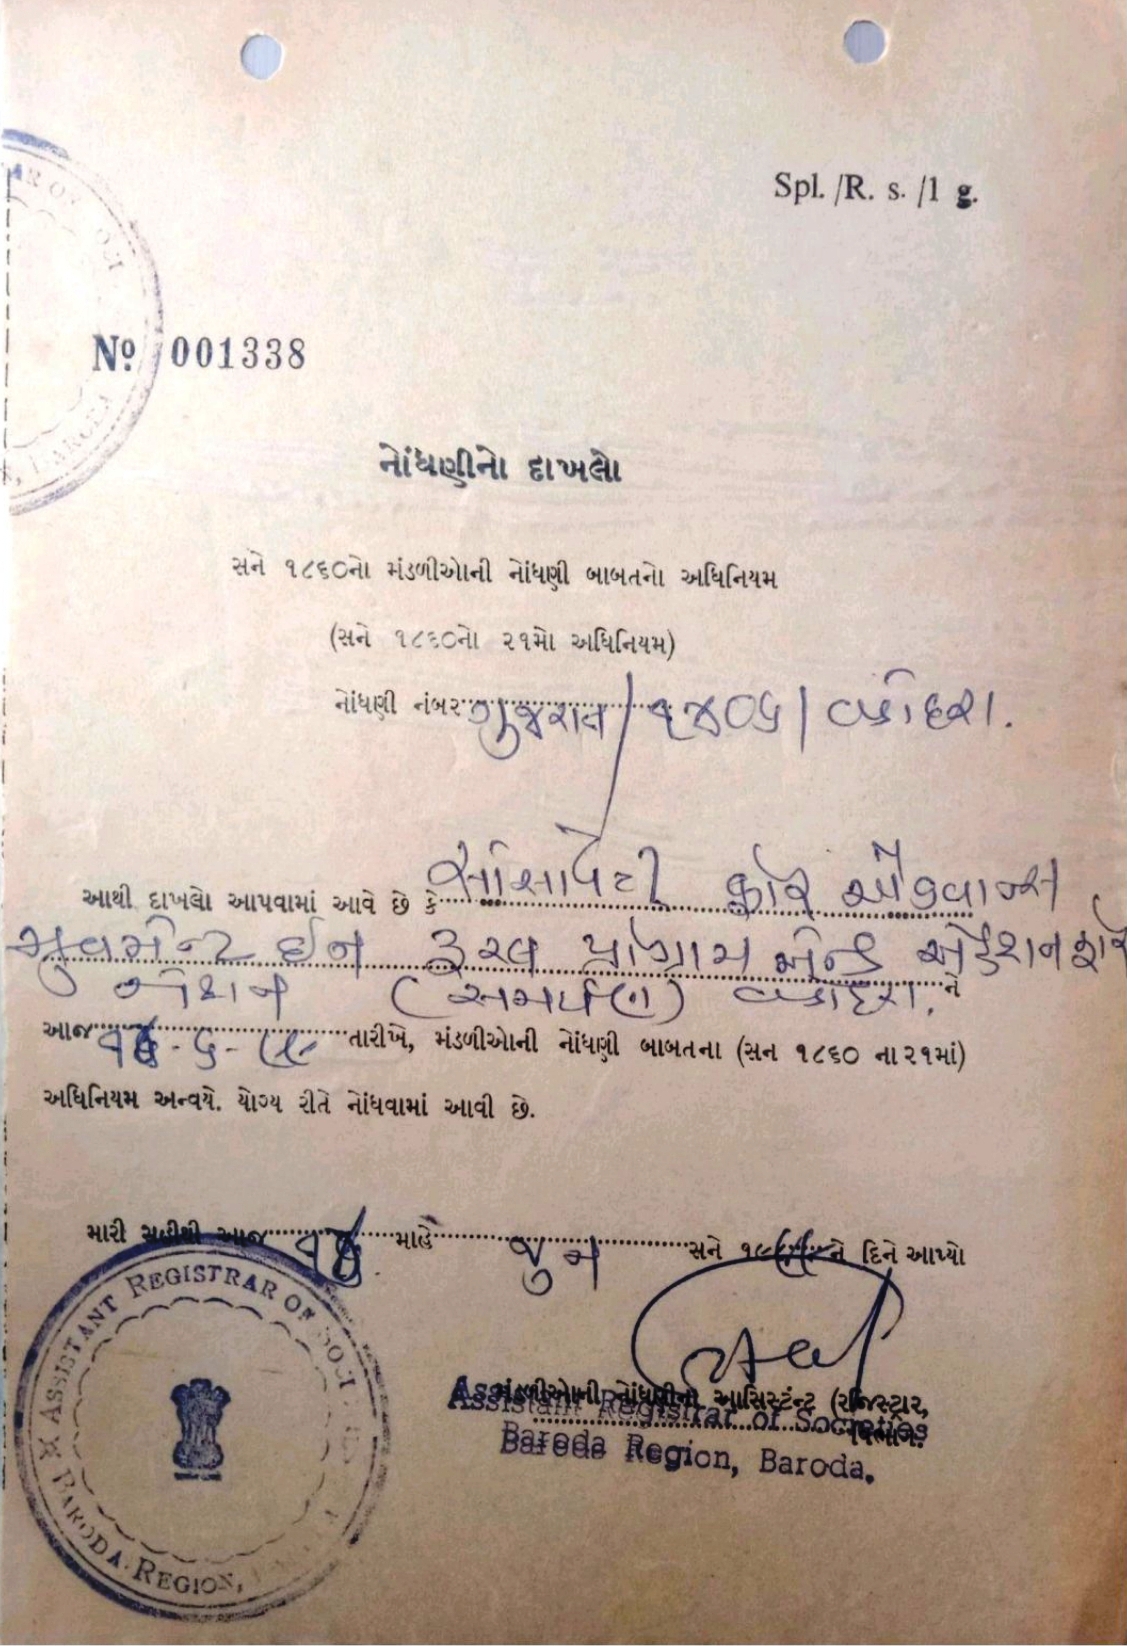 Spl. /R. s. /1 g.
Nº 001338
નોંધણીનો દાખલો
સને ૧૮૬૦નો મંડળીઓની નોંધણી બાબતનો અધિનિયમ
(સને ૧૮૬૦નો ૨૧મો અધિનિયમ)
નોંધણી નંબર ગુજરાત / ૧૪૦૬ / વડોદરા.
આથી દાખલો આપવામાં આવે છે કે સોસાયટી ફોર એડવાન્સ
મુવમેન્ટ ઈન રૂરલ પ્રોગ્રામ એન્ડ
(સમર્પણ) વડોદરા. ને
આજ તારીખે, મંડળીઓની નોંધણી બાબતના (સન ૧૮૬૦ ના ૨૧માં)
અધિનિયમ અન્વયે. યોગ્ય રીતે નોંધવામાં આવી છે.
મારી સહીથી આજ માહે જુન સને ને દિને આપ્યો
મંડળીઓની નોંધણીના આસિસ્ટંન્ટ રજિસ્ટ્રાર,
Assistant Registrar of Societies
વિભાગ.
Baroda Region, Baroda.
ASSISTANT REGISTRAR OF SOCI
BARODA REGION,